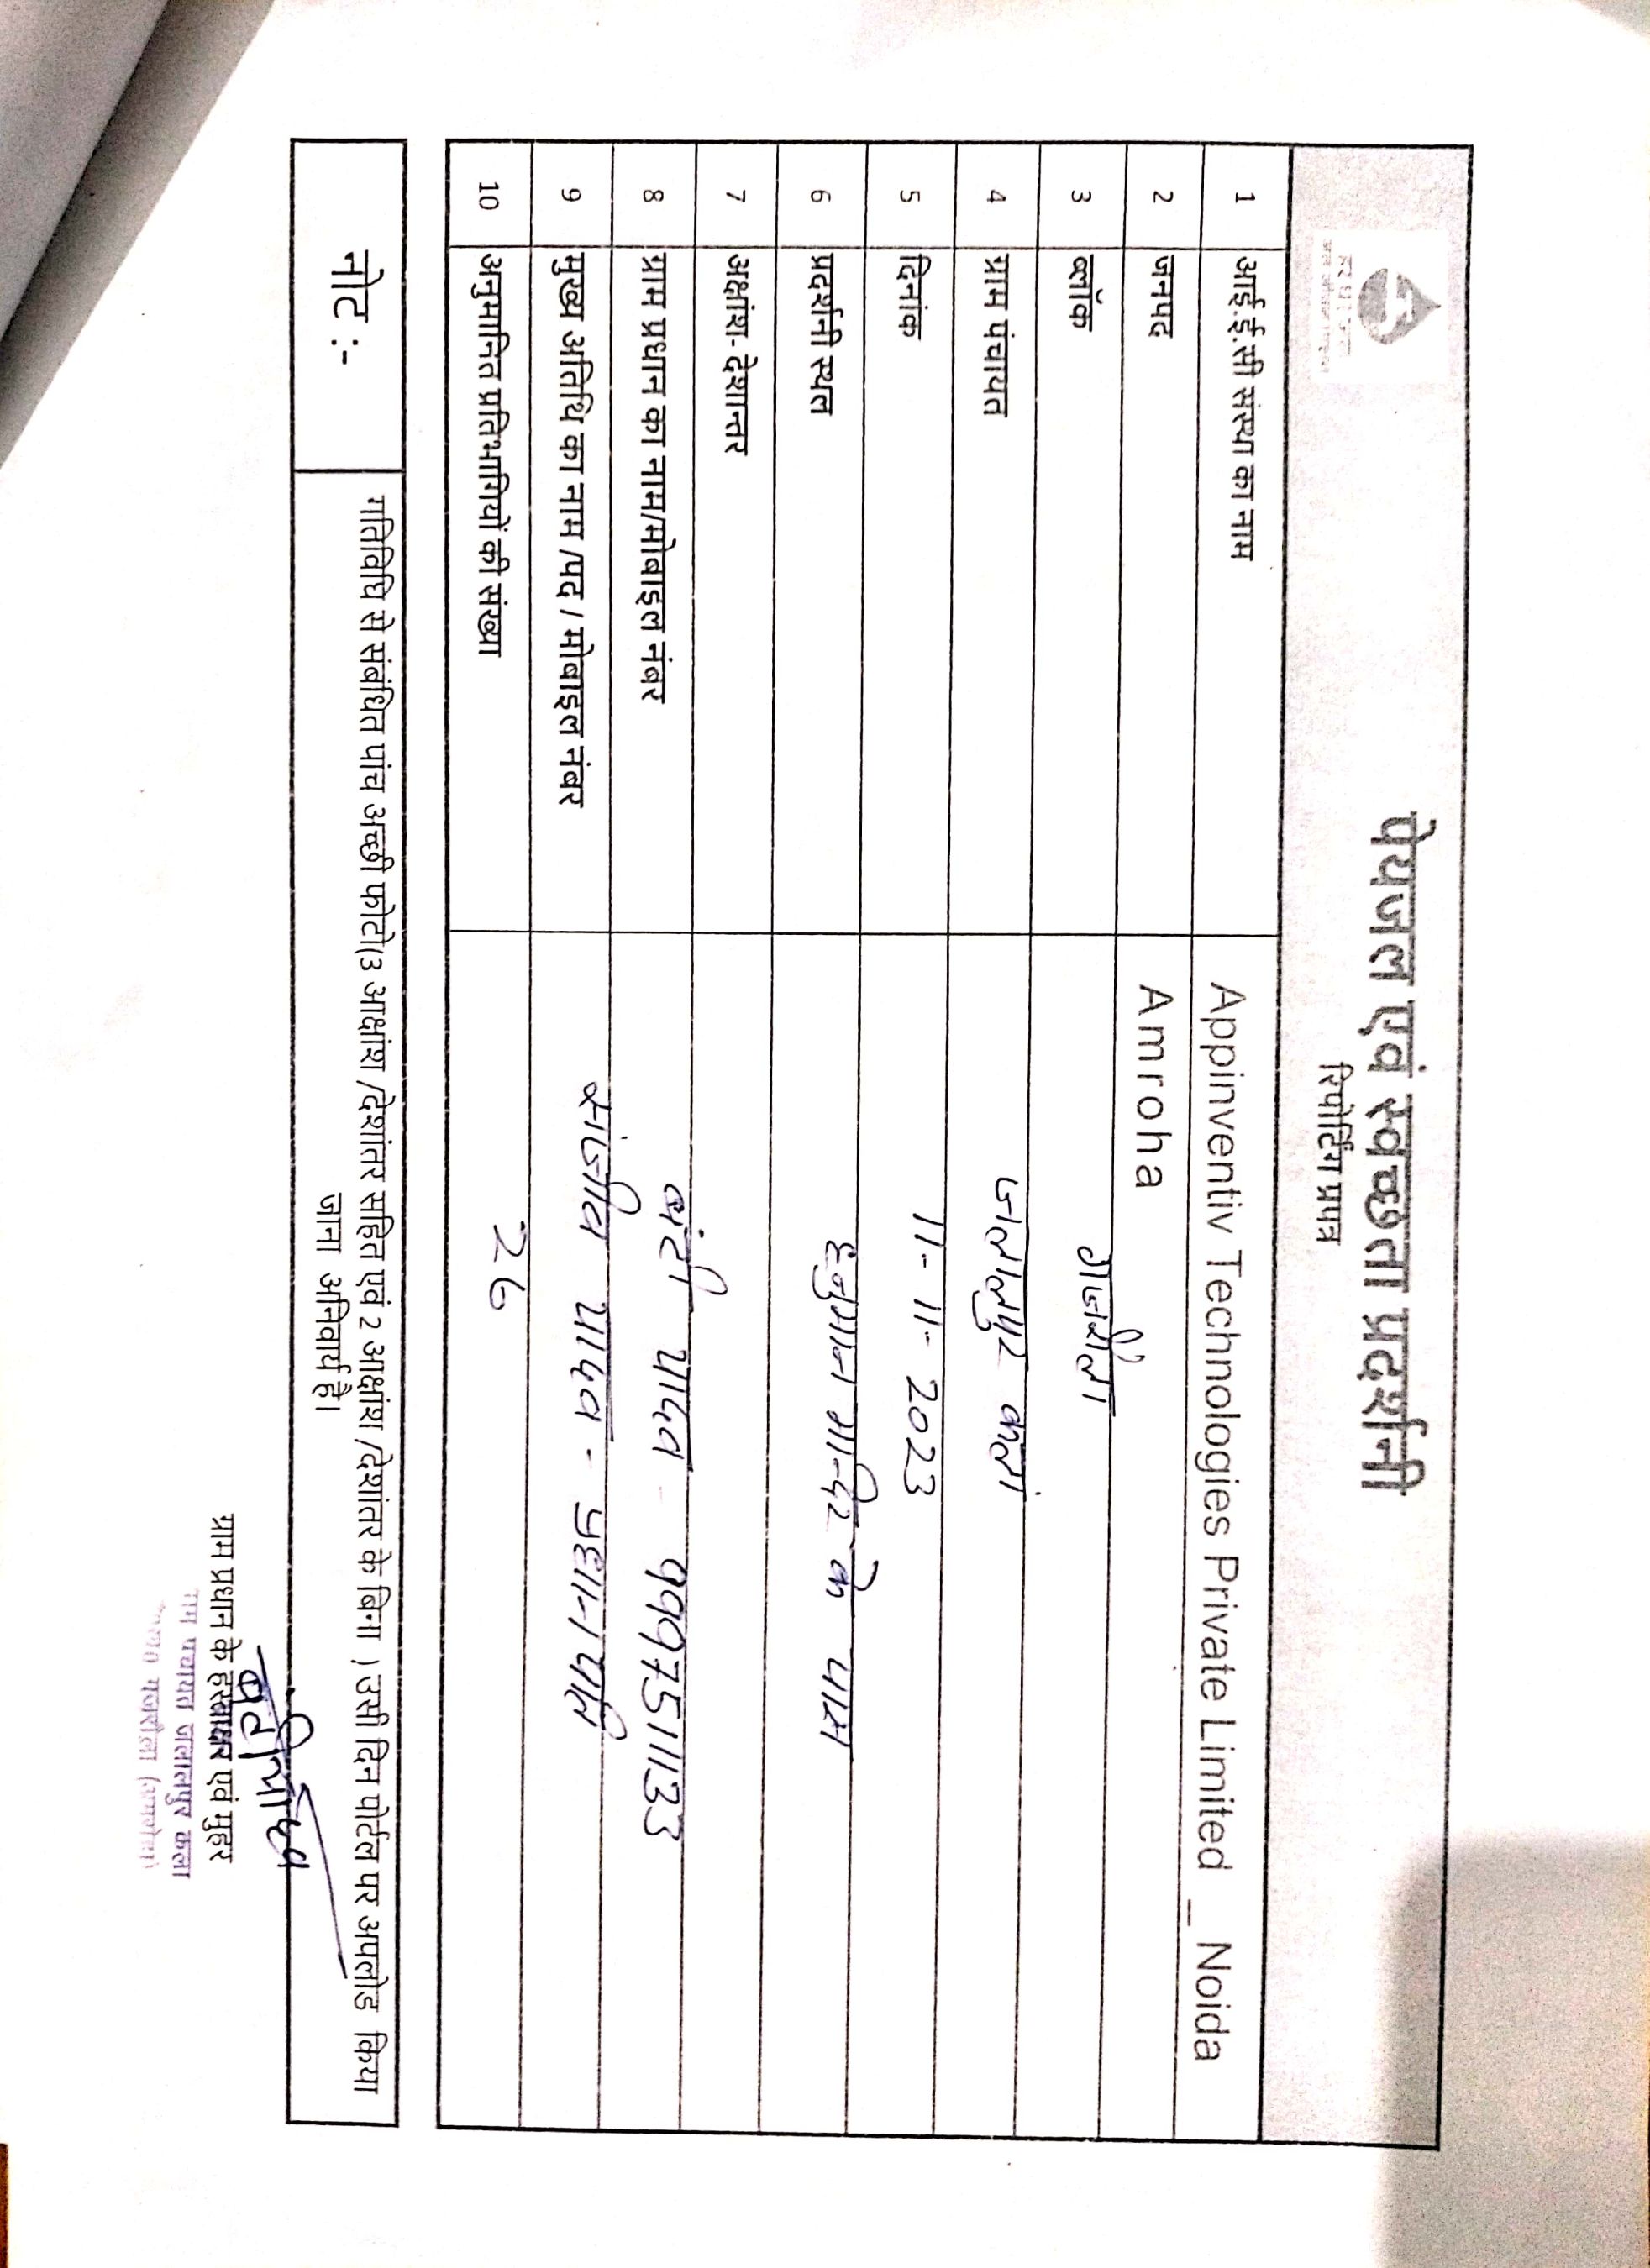 पेयजल एवं स्वच्छता प्रदर्शनी
रिपोर्टिंग प्रपत्र
1 आई.ई.सी संस्था का नाम Appinventiv Technologies Private Limited _ Noida
2 जनपद Amroha
3 ब्लॉक गजरौला
4 ग्राम पंचायत जलालपुर कलां
5 दिनांक 11-11-2023
6 प्रदर्शनी स्थल हनुमान मन्दिर के पास
7 अक्षांश- देशान्तर
8 ग्राम प्रधान का नाम/मोबाइल नंबर बंटी यादव - 9997511133
9 मुख्य अतिथि का नाम /पद / मोबाइल नंबर संजीव यादव - प्रधान पति
10 अनुमानित प्रतिभागियों की संख्या 26
नोट :- गतिविधि से संबंधित पांच अच्छी फोटो(3 आक्षांश /देशांतर सहित एवं 2 आक्षांश /देशांतर के बिना ) उसी दिन पोर्टल पर अपलोड किया
जाना अनिवार्य है।
ग्राम प्रधान के हस्ताक्षर एवं मुहर
पंचायत जलालपुर कला
गजरौला (अमरोहा)